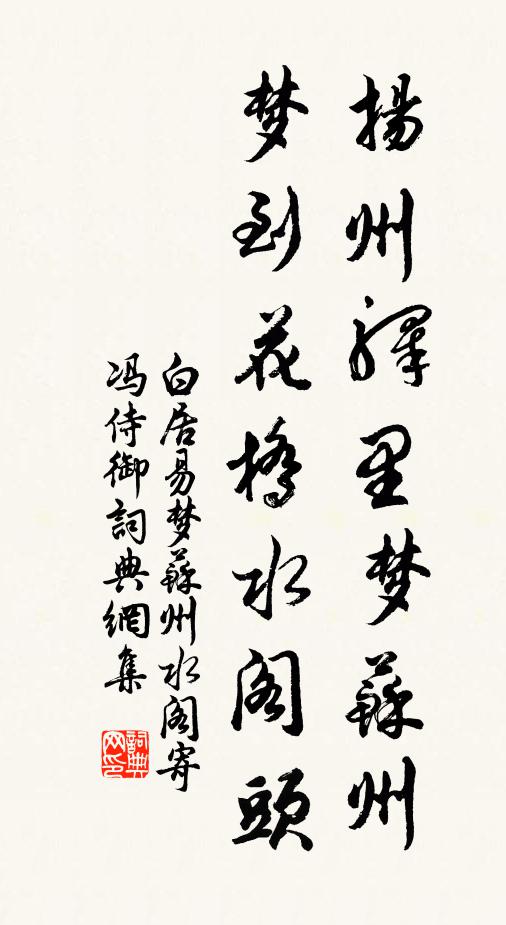 揚州驛里梦蘇州
梦到花橋水阁頭
白居易梦蘇州水阁寄
冯侍御詞典網集
詞典网印